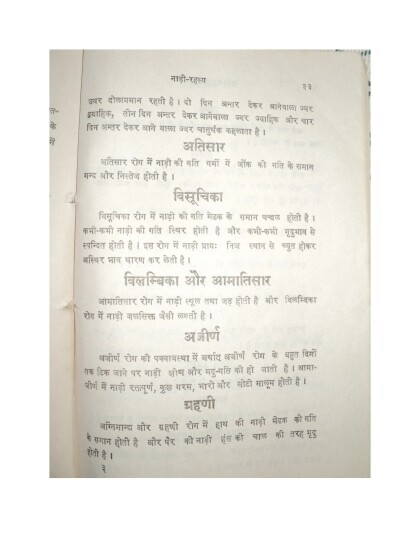 नाड़ी-रहस्य ३३
ज्वर दोलायमान रहती है। दो दिन अन्तर देकर आनेवाला ज्वर
द्वयाहिक, तीन दिन अन्तर देकर आनेवाला ज्वर त्र्याहिक और चार
दिन अन्तर देकर आने वाला ज्वर चातुर्थक कहलाता है।
अतिसार
अतिसार रोग में नाड़ी की गति गर्मी में जोंक की गति के समान
मन्द और निस्तेज होती है।
विसूचिका
विसूचिका रोग में नाड़ी की गति मेढक के समान चञ्चल होती है।
कभी-कभी नाड़ी की गति स्थिर होती है और कभी-कभी मृदुभाव से
स्पन्दित होती है। इस रोग में नाड़ी प्रायः निज स्थान से च्युत होकर
अस्थिर भाव धारण कर लेती है।
विलम्बिका और आमातिसार
आमातिसार रोग में नाड़ी स्थूल तथा जड़ होती है और विलम्बिका
रोग में नाड़ी जलसिक्त जैसी लगती है।
अजीर्ण
अजीर्ण रोग की पक्वावस्था में अर्थात् अजीर्ण रोग के बहुत दिनों
तक टिक जाने पर नाड़ी क्षीण और मृदु-गति की हो जाती है। आमा-
जीर्ण में नाड़ी रक्तपूर्ण, कुछ गरम, भारी और मोटी मालूम होती है।
ग्रहणी
अग्निमान्द्य और ग्रहणी रोग में हाथ की नाड़ी मेढक की गति
के समान होती है और पैर की नाड़ी हंस की चाल की तरह मृदु
होती है।
३